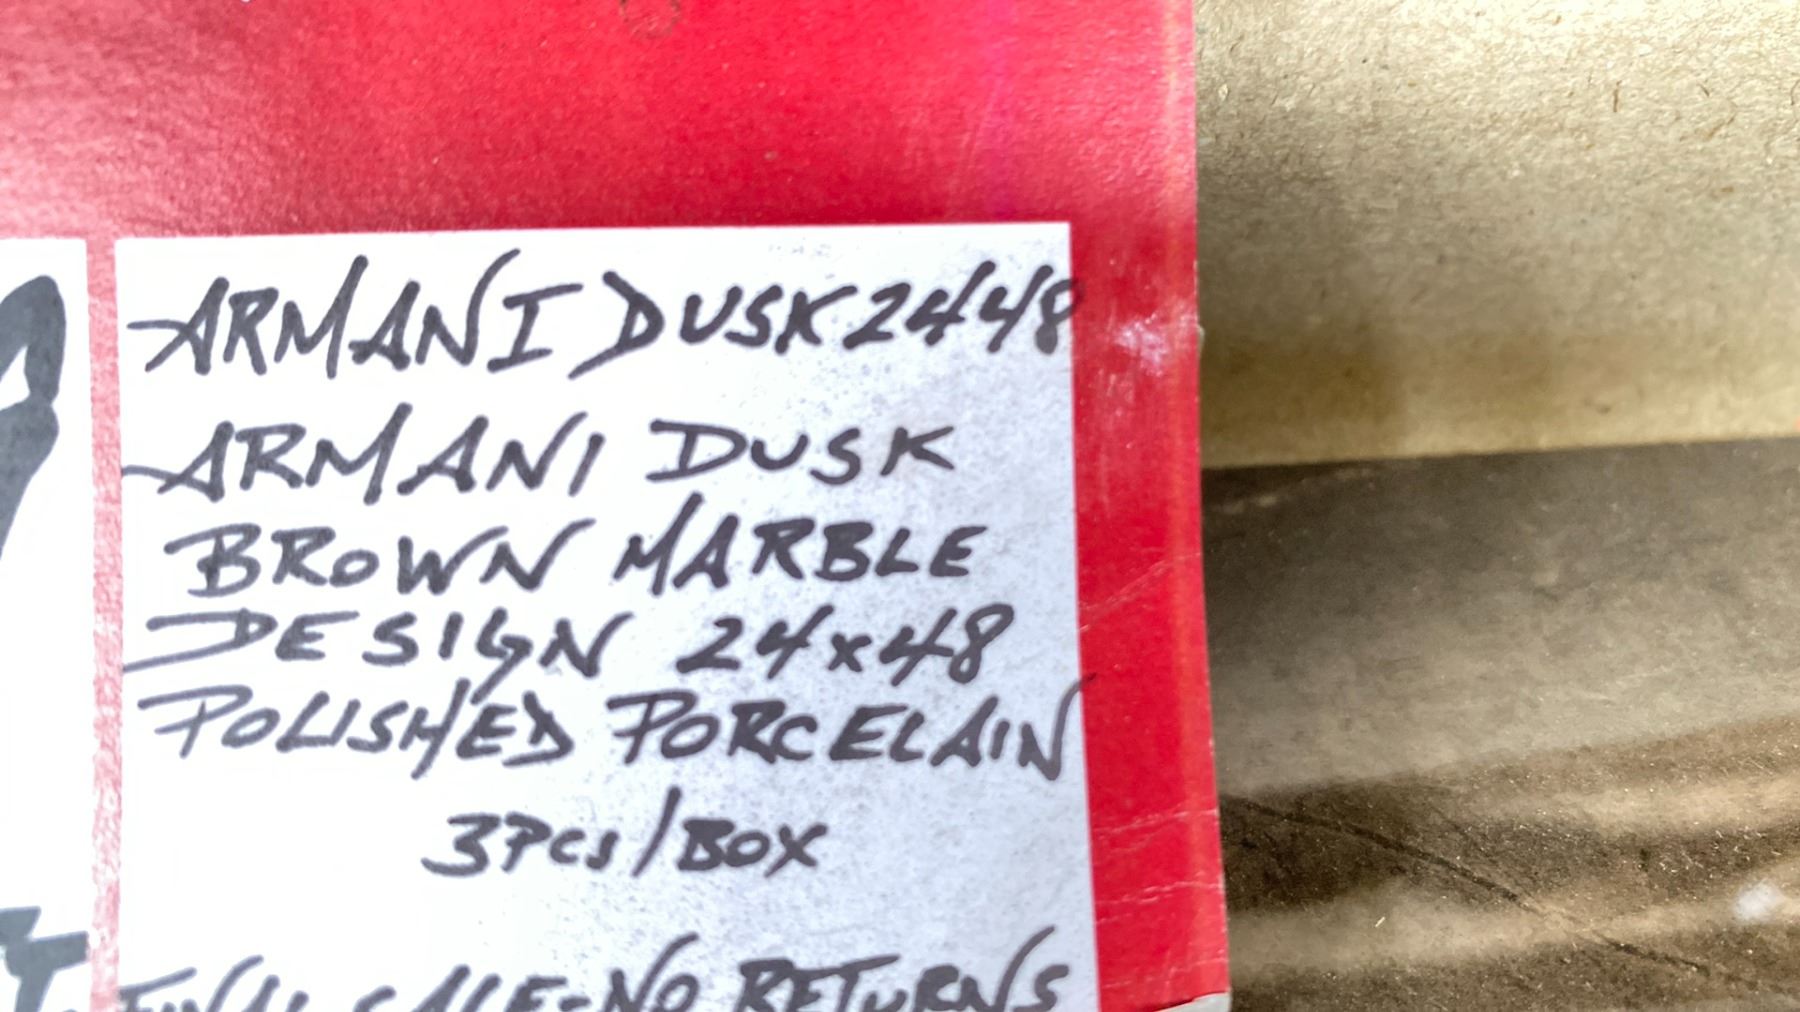 ARMANI DUSK 2448
ARMANI DUSK
BROWN MARBLE
DESIGN 24x48
POLISHED PORCELAIN
3PCS/BOX
FINAL SALE-NO RETURNS